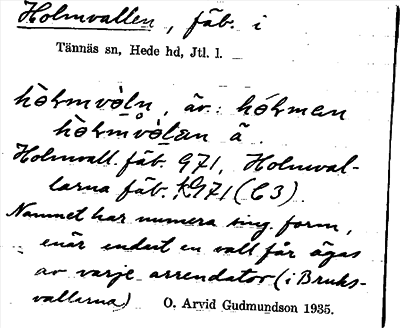 Holmvallen, fäb. i
Tännäs sn, Hede hd, Jtl. l.
hòlmvòln, äv. hólmen
hòlmvòlan å.
Holmvall. fäb. 971, Holmval-
larna fäb. K971 (C3).
Namnet har numera sing. form,
enär endast en vall får ägas
av varje arrendator (i Bruks-
vallarna)
O. Arvid Gudmundson 1935.